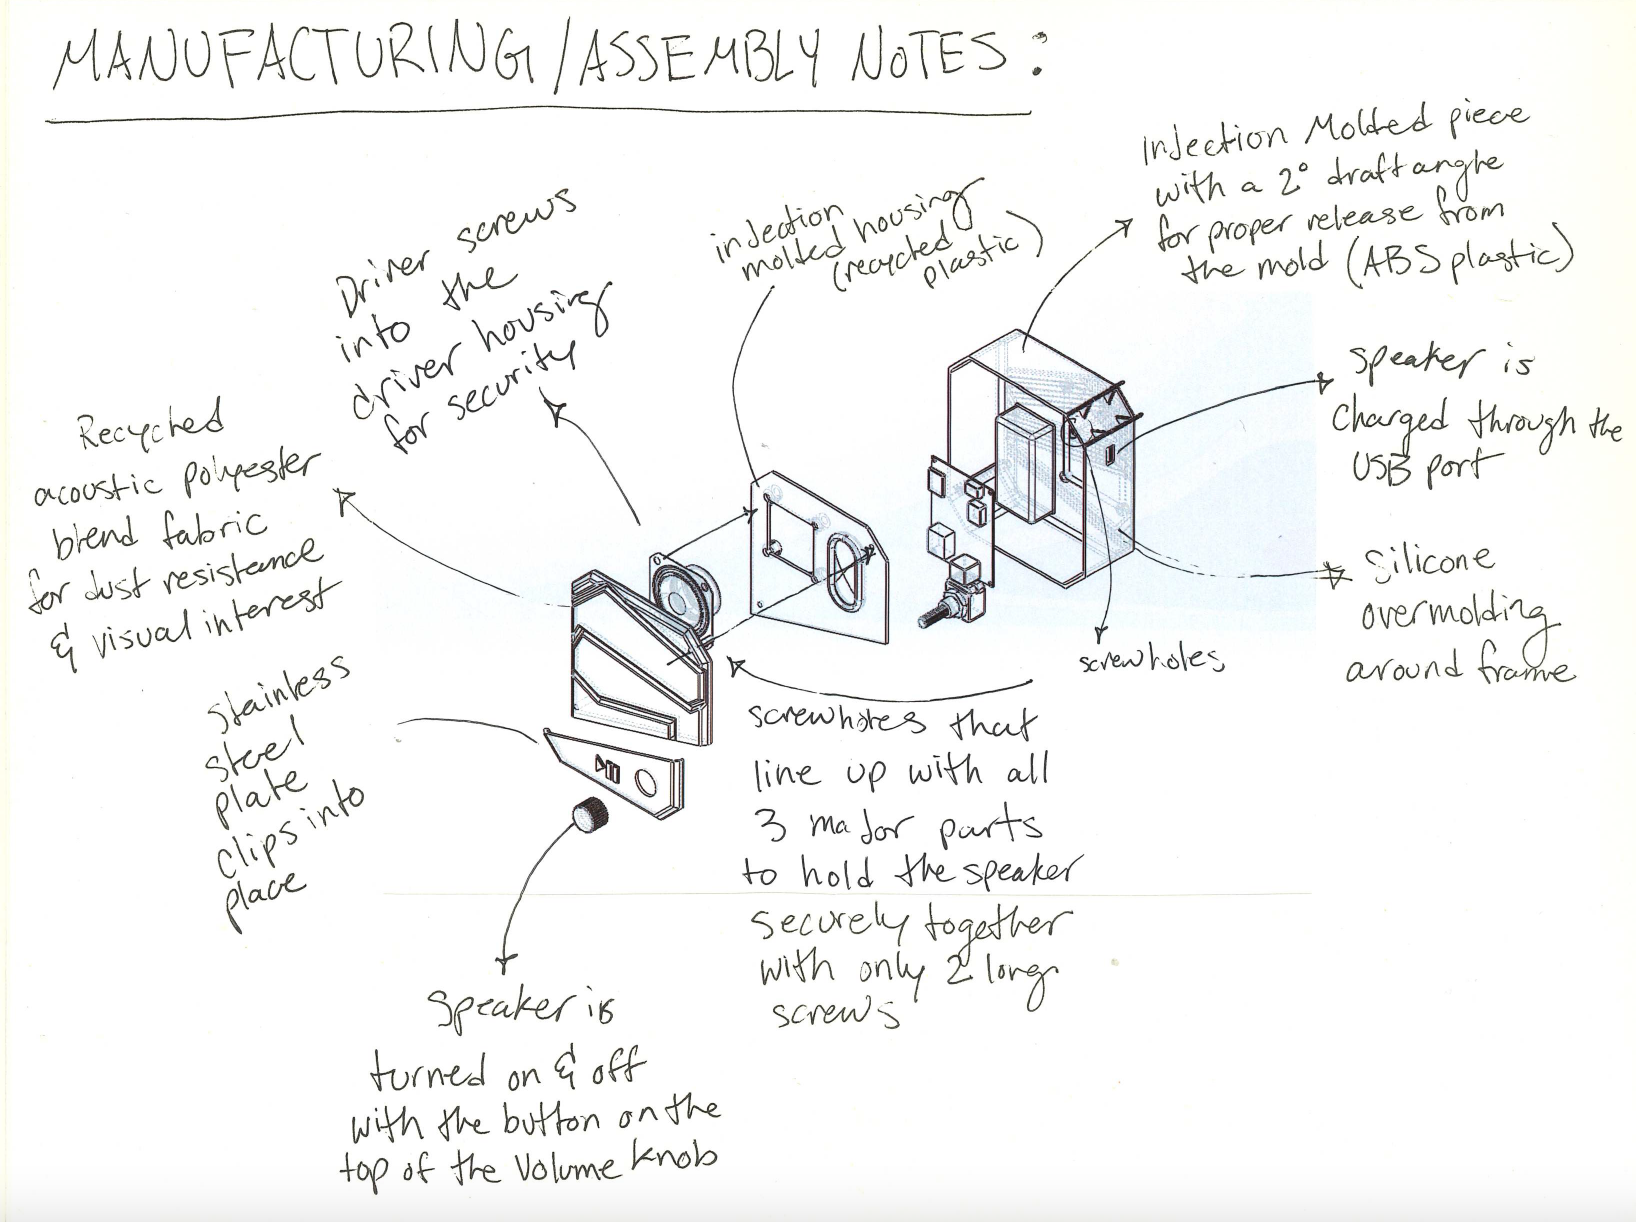 MANUFACTURING/ASSEMBLY NOTES:
Driver screws
into the
driver housing
for security
injection
molted housing
(recycted
plastic)
InJection Molted piece
with a 2° draft angle
for proper release from
the mold (ABS plastic)
Recycted
acoustic polyester
blend fabric
for dust resistance
& visual interest
Speaker is
Charged through the
USB port
Silicone
overmolding
around frame
screwholes
stainless
steel
plate
clips into
place
screwholes that
line up with all
3 major parts
to hold the speaker
securely together
with only 2 long
screws
Speaker is
turned on & off
with the button on the
top of the Volume knob